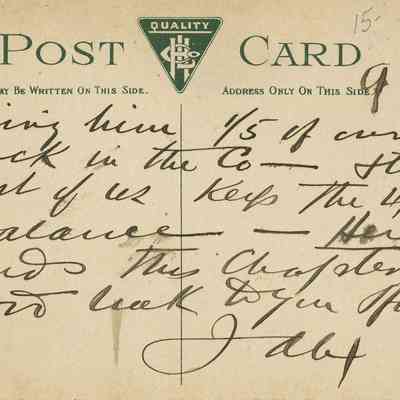 15-
QUALITY
POST CARD
AY BE WRITTEN ON THIS SIDE.
ADDRESS ONLY ON THIS SIDE.
9
ing him 1/5 of our
ck in the Co —
st of us Keeps the 4
alance — — Her
nds this Chapter
ord luck to you